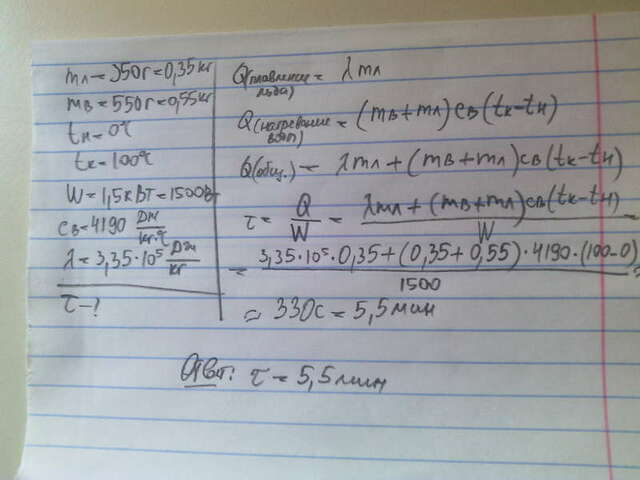 mл=350г=0,35кг
mв=550г=0,55кг
tн=0℃
tк=100℃
W=1,5кВт=1500Вт
cв=4190 Дж/кг·℃
λ=3,35·10⁵ Дж/кг
τ-?
Q(плавление льда)=λmл
Q(нагревание воды)=(mв+mл)cв(tк-tн)
Q(общ.)=λmл+(mв+mл)cв(tк-tн)
τ=Q/W=λmл+(mв+mл)cв(tк-tн)/W=
=3,35·10⁵·0,35+(0,35+0,55)·4190·(100-0)/1500=
=330с=5,5мин
Ответ: τ=5,5мин